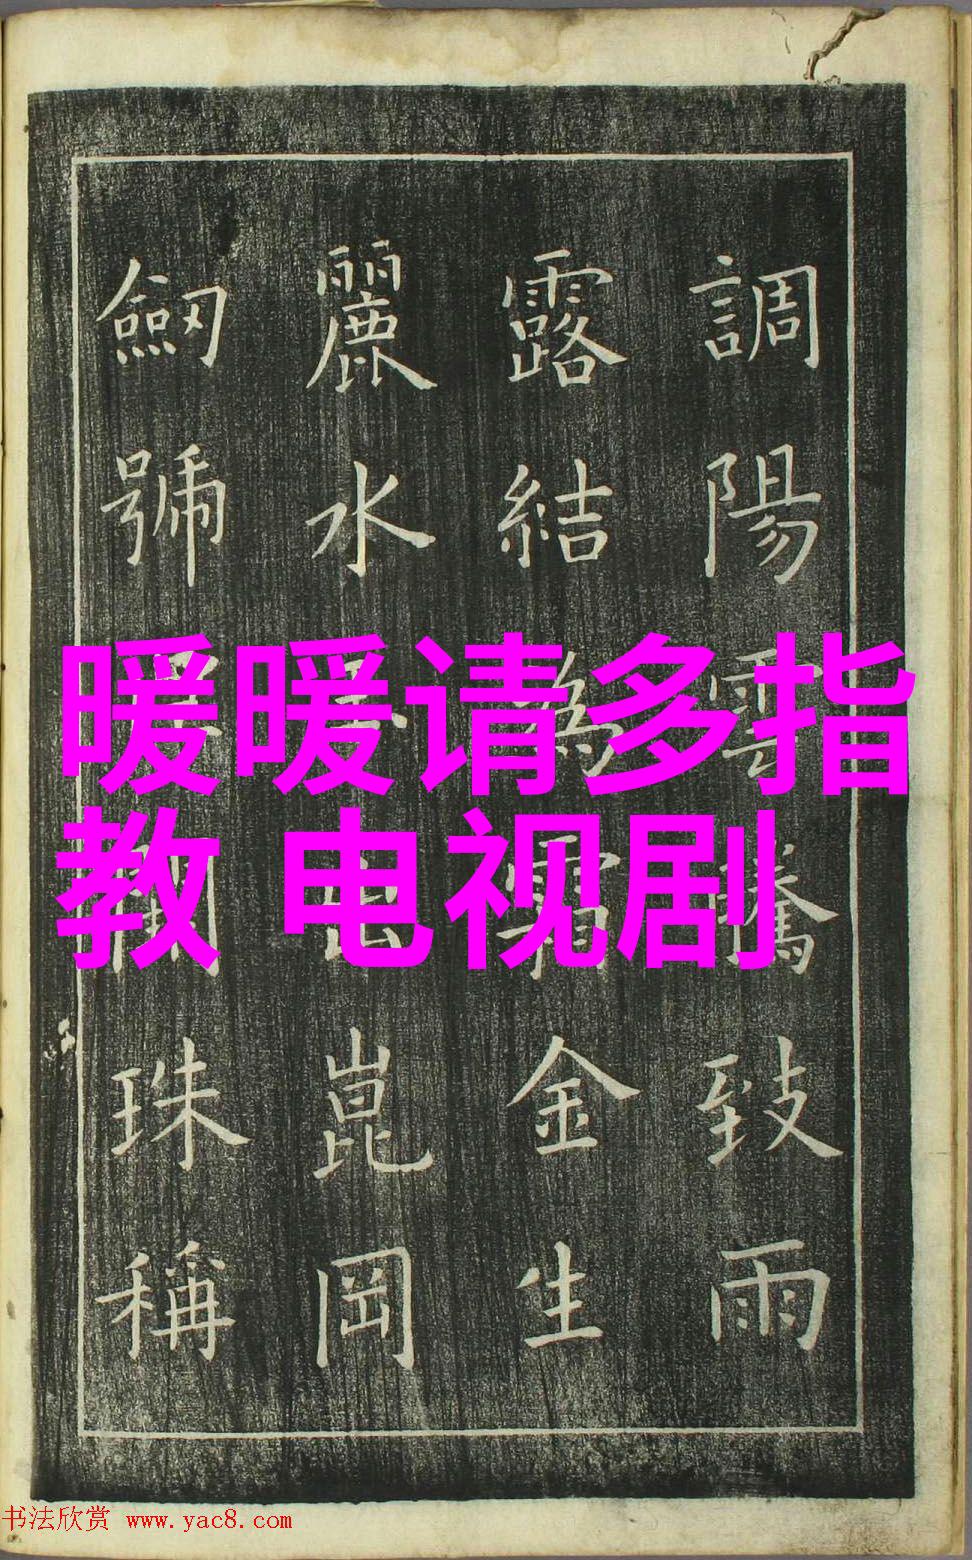 調陽雲騰致雨
露結為霜金生
麗水崑岡
劒號珠稱
暖暖请多指
教 电视剧
书法欣赏 www.yac8.com